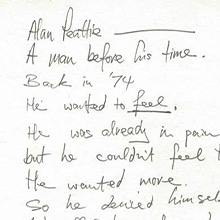 Alan Peattie
A man before his time.
Back in '74
He wanted to feel.
He was already in pain
but he couldn't feel
He wanted more.
So he denied himself